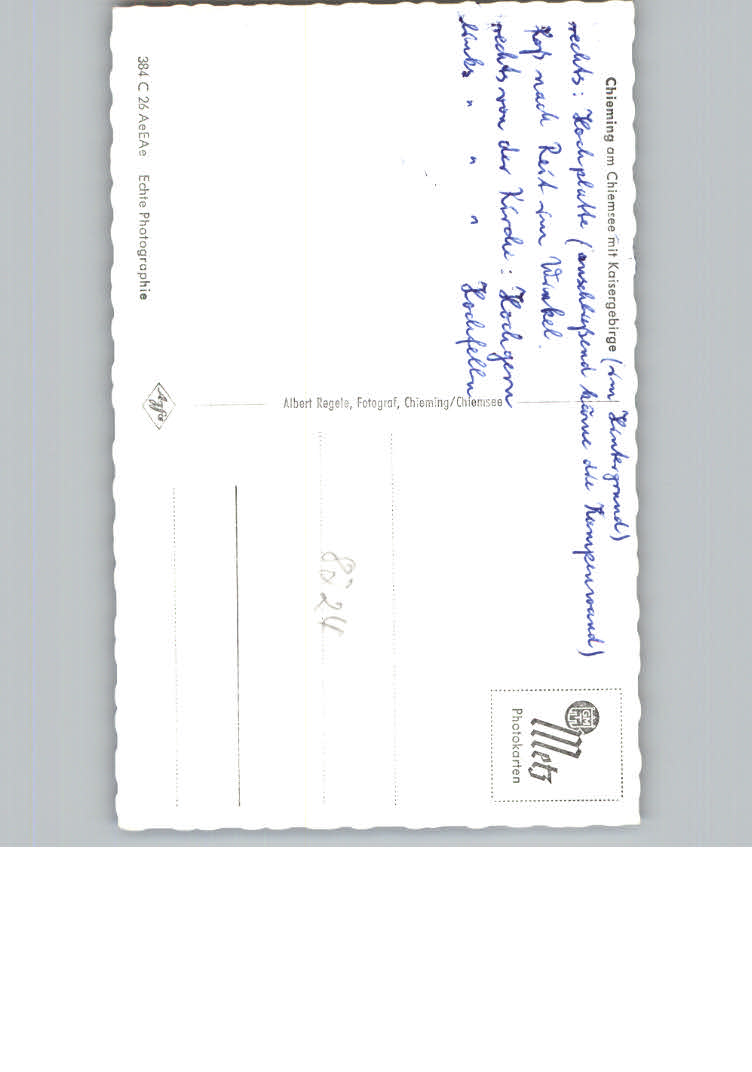 Chieming am Chiemsee mit Kaisergebirge (im Hintergrund)
rechts: Hochplatte (anschließend käme die Kampenwand)
nach Reit im Winkel.
rechts von der Kirche: Hochgern
links " " " Hochfelln
Albert Regele, Fotograf, Chieming/Chiemsee
384 C 26 AeEAe Echte Photographie
Agfa
GM
Metz
Photokarten
8224